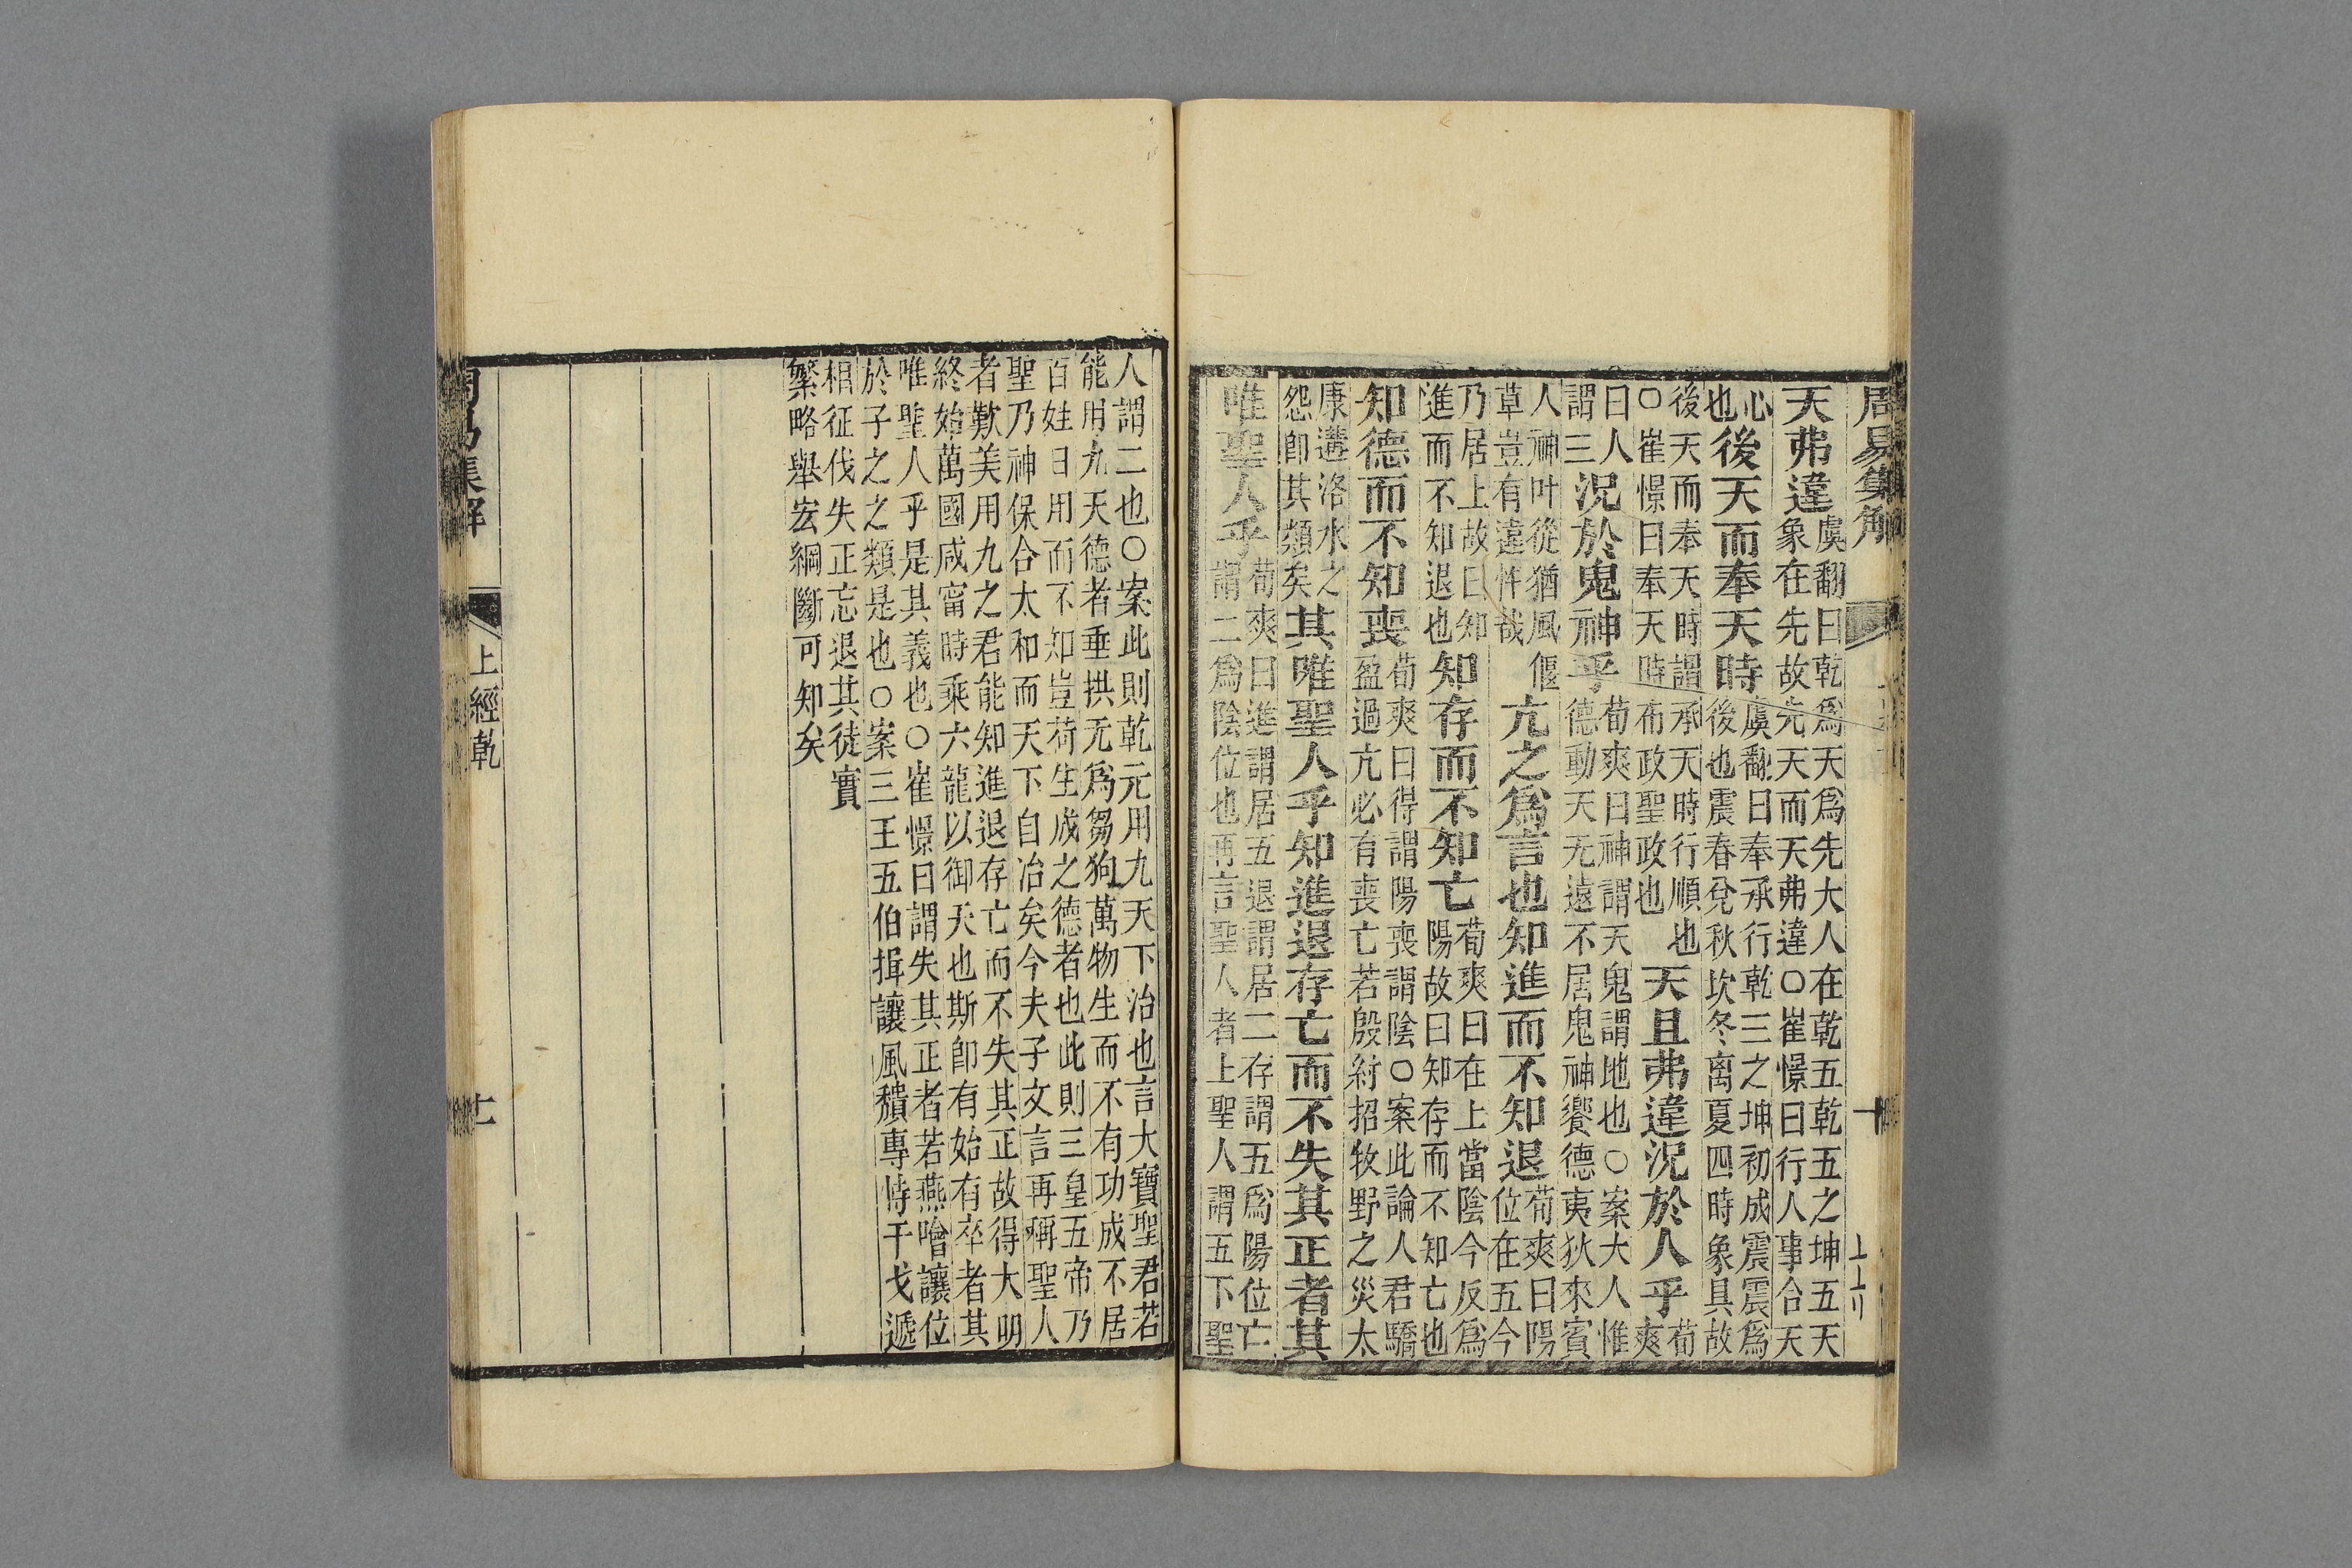 周易集解
天弗違虞翻曰乾爲天爲先大人在乾五乾五之坤五天象在先故先天而天弗違○崔憬曰行人事合天
心也後天而奉天時虞翻曰奉承行乾三之坤初成震震爲後也震春兌秋坎冬離夏四時象具故
後天而奉天時謂承天時行順也○崔憬曰奉天時布政聖政也天且弗違況於人乎荀爽
曰人謂三況於鬼神乎荀爽曰神謂天鬼謂地也○案大人惟德動天无遠不居鬼神饗德夷狄來賓
人神叶從猶風偃草豈有違忤哉亢之爲言也知進而不知退荀爽曰陽位在五今
乃居上故曰知進而不知退也知存而不知亡荀爽曰在上當陰今反爲陽故曰知存而不知亡也
知德而不知喪荀爽曰得謂陽喪謂陰○案此論人君驕盈過亢必有喪亡若殷紂招牧野之災太
康遘洛水之怨卽其類矣其唯聖人乎知進退存亡而不失其正者其
唯聖人乎荀爽曰進謂居五退謂居二存謂五爲陽位亡謂二爲陰位也再言聖人者上聖人謂五下聖
人謂二也○案此則乾元用九天下治也言大寶聖君若
能用九天德者垂拱无爲芻狗萬物生而不有功成不居
百姓日用而不知豈荷生成之德者也此則三皇五帝乃
聖乃神保合太和而天下自冶矣今夫子文言再稱聖人
者歎美用九之君能知進退存亡而不失其正故得大明
終始萬國咸甯時乘六龍以御天也斯卽有始有卒者其
唯聖人乎是其義也○崔憬曰謂失其正者若燕噲讓位
於子之之類是也○案三王五伯揖讓風穨專恃干戈遞
相征伐失正忘退其徒實
繁略舉宏綱斷可知矣
周易集解
上經乾